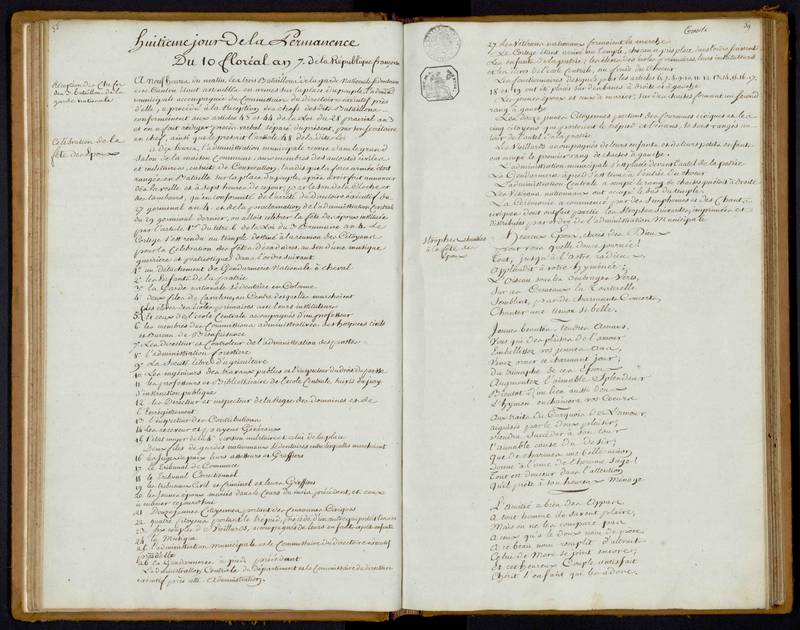 58
huitieme jour De la Permanence
Du 10 floréal an 7. de la République française
Réception des Chefs
du 3e bataillon de la
garde nationale
A neuf heures du matin, les trois Bataillons de la garde Nationale sédentaire
du Canton étant assemblés en armes sur la place du peuple, l'admon
municipale accompagnée du Commissaire du directoire exécutif près
d'elle, a procédé à la réception des chefs des dits Bataillons
conformément aux articles 43 et 44 de la Loi du 28 prairial an 3
et en a fait rédiger procès verbal séparé du présent, pour lui faire
en chef, ainsi que le prescrit l'article 48 de la dite loi
Célébration de la
fête des Epoux
A dix heures, l'administration municipale réunie dans le grand
Salon de la maison Commune, aux membres des autorités civiles
et militaires, ensuite de Convocation, tandis que la force armée était
rangée en Bataille sur la place du peuple, après avoir fait annoncer
dès la veille et à sept heures de ce jour, par le son de la Cloche et
des tambours, qu'en conformité de l'arrêté du directoire exécutif du
27 germinal an 4 et de la proclamation de l'administration Centrale
du 29 germinal dernier, on alloit célébrer la fête des époux instituée
par l'article 1er du titre 6 de la Loi du 3 Brumaire an 4. Le
Cortège s'est rendu au temple destiné à la réunion des Citoyens
pour la Célébration des fêtes décadaires, au son d'une musique
guerrière et patriotique dans l'ordre suivant
1° un Détachement de Gendarmerie Nationale à cheval
2° les Enfants de la patrie
3° la Garde nationale sédentaire en Colonne
4° deux files de fusiliers au Centre desquelles marchaient
les élèves des écoles primaires avec leurs instituteurs
5° Et ceux de l'école Centrale accompagnés d'un professeur
6° les membres des Commissions administratives des hospices civils
et Bureau de Bienfaisance
7° Le directeur et Controleur de l'administration des postes
8° l'administration forestière
9° La Société libre d'agriculture
10 Les ingénieurs des travaux publics et l'inspecteur du droit de passe
11 les professeurs et Bibliothécaire de l'école Centrale, suivis du jury
d'instruction publique
12 les Directeur et inspecteur de la Régie des domaines et de
l'enregistrement
13 L'inspecteur des Contributions
14 les receveur et payeur Généraux
15 l'état major de la division militaire et celui de la place
Deux files de gardes nationaux sédentaires entre lesquelles marchaient
16 les Juges de paix leurs assesseurs et Greffiers
17 le tribunal de Commerce
18 le Tribunal Correctionnel
19 les tribunaux Civil et Criminel et leurs Greffiers
20 les jeunes époux mariés dans le Cours du mois précédent, et ceux
à marier aujourd'hui
21 Douze jeunes Citoyennes portant des Couronnes Civiques
22 quatre Citoyens portant le trépied
23 des couples de Vieillards, accompagnés de leurs enfants et petits enfants
24 la Musique
25 l'administration municipale et le Commissaire du Directoire exécutif
près d'elle
26 la Gendarmerie à pied, précédant
L'administration Centrale du Département et le Commissaire du directoire
exécutif près cette administration.
59
27 Les Vétérans nationaux fermaient la marche
Le Cortège étant arrivé au temple, chacun a pris place dans l'ordre suivant
Les enfants de la patrie, les élèves des écoles primaires, leurs instituteurs
et les élèves de l'école Centrale, au fond du Choeur
Les fonctionnaires désignés par les articles 6, 7, 8, 9, 10, 11, 12, 13, 14, 15, 16, 17,
18 et 19 ont été placés sur des bancs à droite et à gauche
Les jeunes époux et ceux à marier, sur des chaises formant un second
rang à gauche
Les douze jeunes Citoyennes portant des Couronnes civiques et les
cinq citoyens qui portaient le trépied et l'encens, se sont rangés au
tour de l'autel de la patrie
Les Vieillards accompagnés de leurs enfants et de leurs petits enfants
ont occupé le premier rang de chaises à gauche.
L'administration municipale s'est placée devant l'autel de la patrie
La Gendarmerie à pied s'est tenue à l'entrée du choeur
L'administration Centrale a occupé le rang de chaises qui était à droite
Les Vétérans nationaux ont occupé le bas du temple.
La Cérémonie a commencé par des Symphonies et des Chants
civiques dont ont fait partie les Strophes suivantes, imprimées et
distribuées par ordre de l'administration Municipale
Strophes chantées
à la fête des
Epoux
Heureux Epoux, chéris des Dieux
Pour vous quelle douce journée!
Tout, jusqu'à l'astre radieux,
Applaudit à votre hyménée;
L'Oiseau sous les ombrages verts,
Sur ces Coteaux la tourterelle
Semblent, par de charmants Concerts,
Chanter une Union si belle.
Jeunes beautés, tendres amans,
Vous qui des plaisirs de l'amour
Embellissez vos jeunes ans,
Venez orner ce charmant jour;
Du triomphe de ces Epoux
Augmentez l'aimable Splendeur
Bientôt d'un lien aussi doux
L'hymen enchaînera vos Coeurs
Aux traits du Carquois de l'amour,
aiguisés par le doux plaisir,
viendra Succéder à son tour
l'aimable cause du désir;
Que de charmes une belle union,
Donne à l'âme de l'homme Sage!
Tout est douceur dans l'attention
Qu'il prête à son heureux ménage.
L'amitié a bien des Appas
A tout homme ils doivent plaire,
Mais on ne les compare pas
A ceux qu'a le doux nom de père
A ce beau nom rempli d'attraits
Celui de Mère se joint encore;
Et cet heureux Couple satisfait
Chérit l'enfant qui les adore.